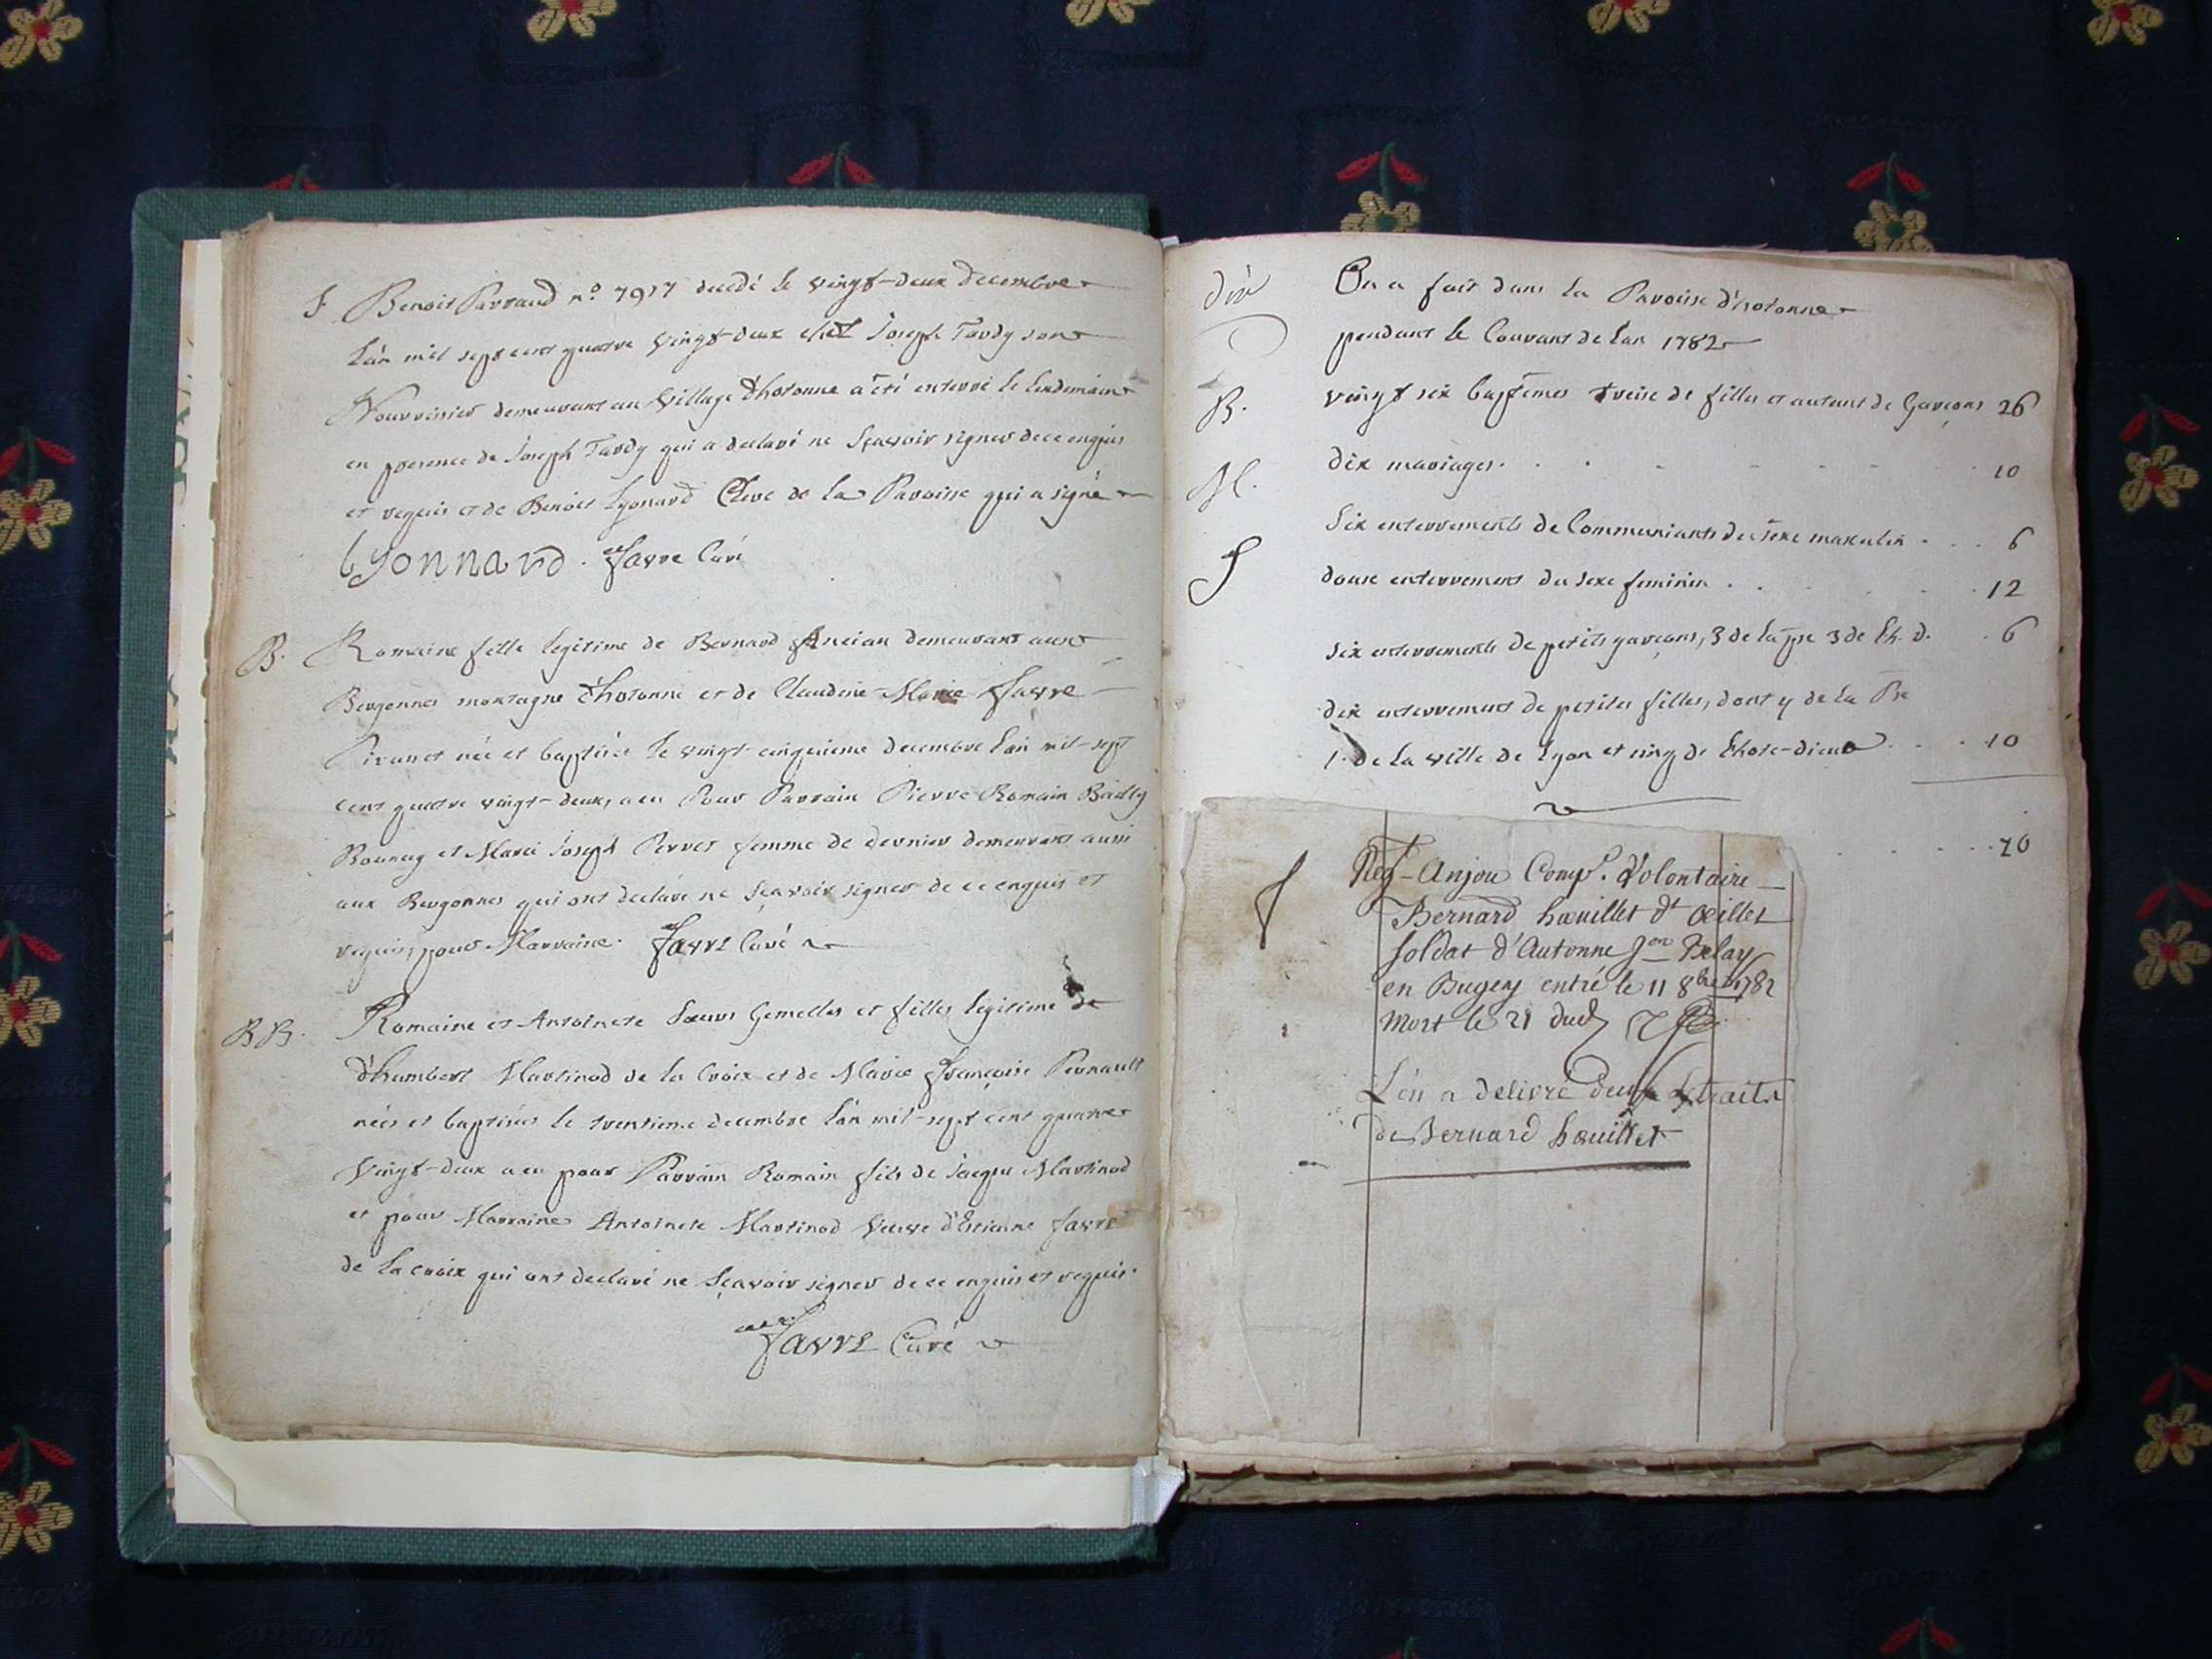 S Benoit Parraud n.o 7917 decedé le vingt-deux decembre
L'an mil sept cent quatre vingt-deux chez Joseph Tardy son
Nourrissier demeurant au Village d'hotonne a été enterré le lendemain
en presence de Joseph Tardy qui a declaré ne sçavoir signer de ce enquis
et requis et de Benoit Lyonard Clerc de la Paroisse qui a signé
Lyonnard. favre Curé
B. Romaine fille legitime de Bernard Ancian demeurant aux
Bergonnes montagne d'hotonne et de Claudine-Marie favre
née et baptisée le vingt-cinquieme decembre l'an mil-sept
cent quatre vingt-deux, a eu Pour Parrain Pierre Romain Bailly
et Marie Joseph Pervet femme de dernier demeurants aussi
aux Bergonnes qui ont declaré ne sçavoir signer de ce enquis et
requis, pour Marraine. favre Curé
BB. Romaine et Antoinete Soeurs Gemelles et filles legitime de
d'humbert Martinod de la Croix et de Marie françoise Pernault
nées et baptisées le trentieme decembre l'an mil-sept cent quatre
Vingt-deux a eu pour Parrain Romain fils de Jaque Martinod
et pour Marraine Antoinete Martinod Veuve d'Etienne favre
de la croix qui ont declaré ne sçavoir signer de ce enquis et requis.
favre Curé
On a fait dans la Paroisse d'hotonne
pendant le Courant de l'an 1782
B. vingt six baptêmes treise de filles et autant de Garçons 26
M. dix mariages. 10
S Six enterrements de Communiants du sexe masculin 6
douse enterrements du sexe feminin 12
six enterrements de petits garçons, 3 de la pse 3 de Lh. D. 6
dix enterrement de petites filles, dont 4 de la Pse
1. de la ville de Lyon et cinq de L'hote-dieu 10
70
Reg.t Anjou Comp.e Volontaire
Bernard hœuillet dt œillet
soldat d'Autonne J.on Belay
en Bugey entré le 11 8bre 1782
Mort le 21 dud
L'on a delivré deux Extraits
de Bernard hœuillet